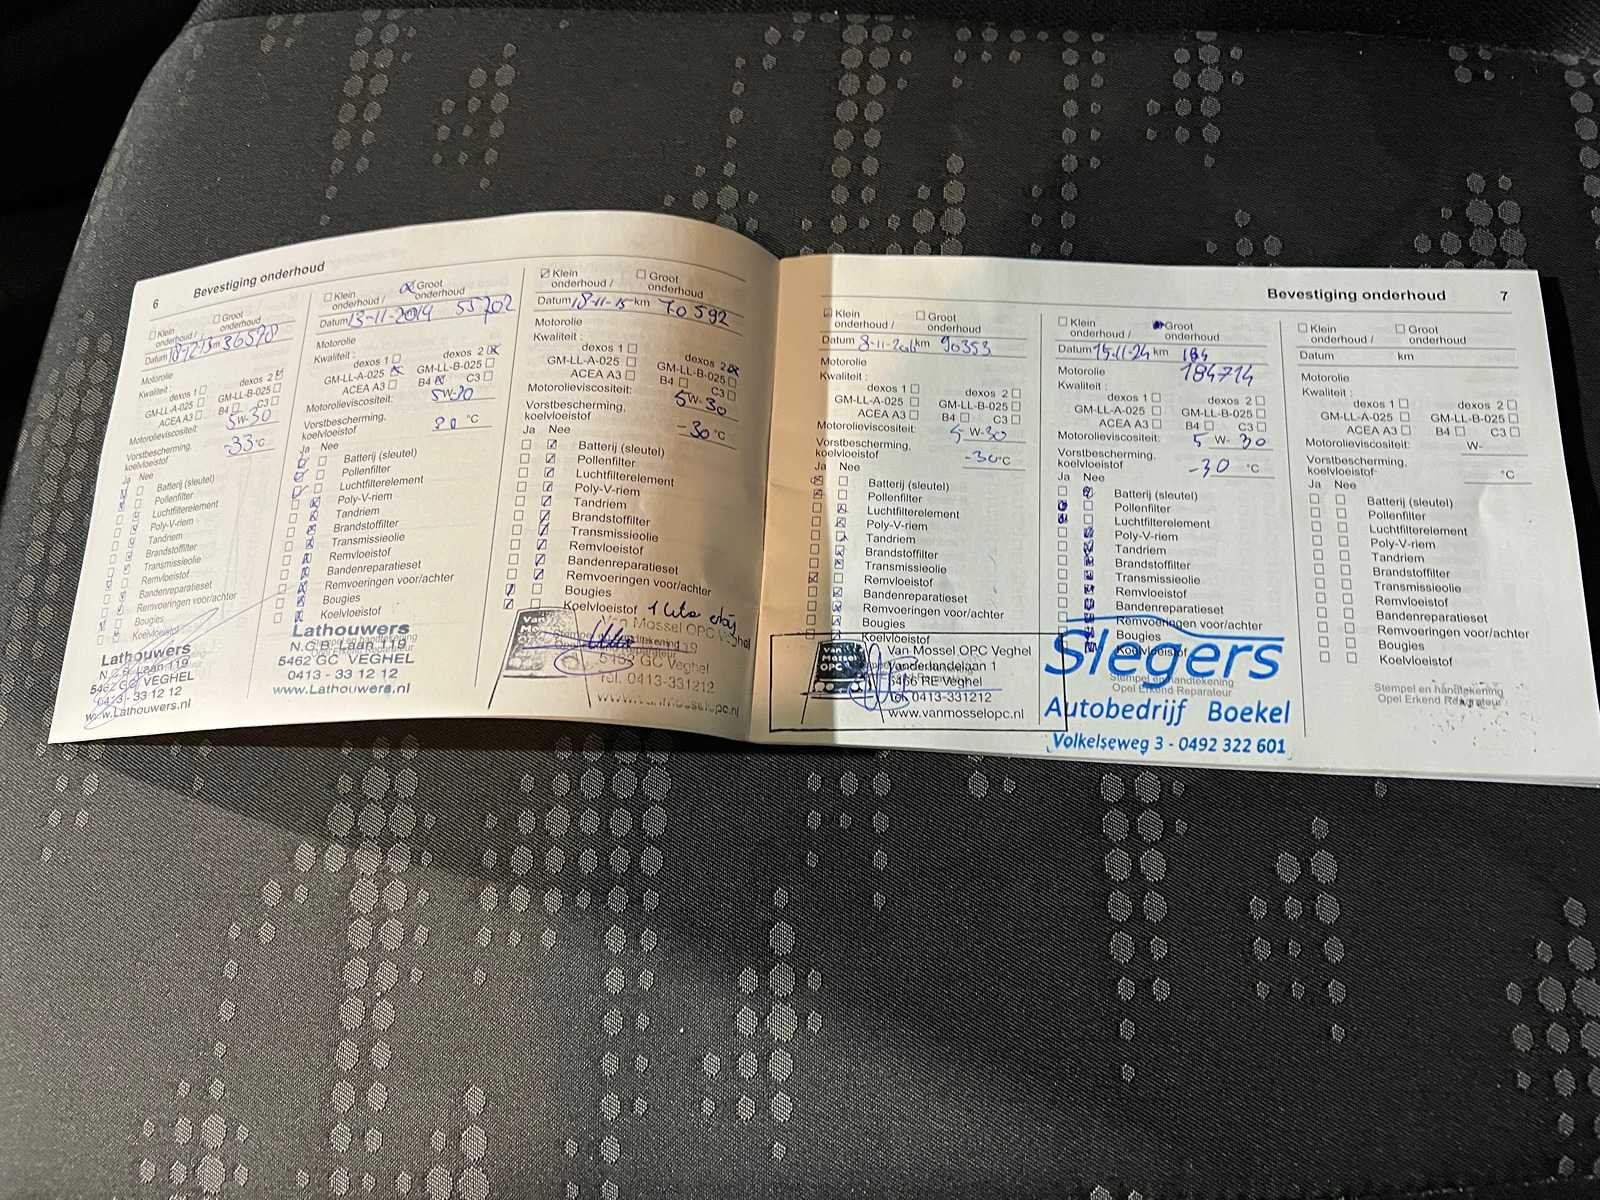 6 Bevestiging onderhoud
Klein onderhoud / Groot onderhoud
Datum km 36578
Motorolie
Kwaliteit :
dexos 1 dexos 2
GM-LL-A-025 GM-LL-B-025
ACEA A3 B4 C3
Motorolieviscositeit: 5W-30
Vorstbescherming,
koelvloeistof -33 °C
Ja Nee
Batterij (sleutel)
Pollenfilter
Luchtfilterelement
Poly-V-riem
Tandriem
Brandstoffilter
Transmissieolie
Remvloeistof
Bandenreparatieset
Remvoeringen voor/achter
Bougies
Koelvloeistof
Lathouwers
N.C.B. Laan 119
5462 GC VEGHEL
0413 - 33 12 12
www.Lathouwers.nl
Klein onderhoud / Groot onderhoud
Datum 13-11-2014 55702
Motorolie
Kwaliteit :
dexos 1 dexos 2
GM-LL-A-025 GM-LL-B-025
ACEA A3 B4 C3
Motorolieviscositeit:
Vorstbescherming,
koelvloeistof °C
Ja Nee
Batterij (sleutel)
Pollenfilter
Luchtfilterelement
Poly-V-riem
Tandriem
Brandstoffilter
Transmissieolie
Remvloeistof
Bandenreparatieset
Remvoeringen voor/achter
Bougies
Koelvloeistof
Lathouwers
N.C.B. Laan 119
5462 GC VEGHEL
0413 - 33 12 12
www.Lathouwers.nl
Klein onderhoud / Groot onderhoud
Datum 18-11-15 km 70592
Motorolie
Kwaliteit :
dexos 1 dexos 2
GM-LL-A-025 GM-LL-B-025
ACEA A3 B4 C3
Motorolieviscositeit: 5W-30
Vorstbescherming,
koelvloeistof -30 °C
Ja Nee
Batterij (sleutel)
Pollenfilter
Luchtfilterelement
Poly-V-riem
Tandriem
Brandstoffilter
Transmissieolie
Remvloeistof
Bandenreparatieset
Remvoeringen voor/achter
Bougies
Koelvloeistof
Van Mossel OPC Veghel
5462 GC Veghel
Tel. 0413-331212
www.vanmosselopc.nl
Bevestiging onderhoud 7
Klein onderhoud / Groot onderhoud
Datum 8-11-2016 km 90353
Motorolie
Kwaliteit :
dexos 1 dexos 2
GM-LL-A-025 GM-LL-B-025
ACEA A3 B4 C3
Motorolieviscositeit: 5 W-30
Vorstbescherming,
koelvloeistof -30 °C
Ja Nee
Batterij (sleutel)
Pollenfilter
Luchtfilterelement
Poly-V-riem
Tandriem
Brandstoffilter
Transmissieolie
Remvloeistof
Bandenreparatieset
Remvoeringen voor/achter
Bougies
Koelvloeistof
Van Mossel OPC
Van Mossel OPC Veghel
Vanderlandelaan 1
5466 RE Veghel
Tel. 0413-331212
www.vanmosselopc.nl
Klein onderhoud / Groot onderhoud
Datum 15-11-24 km 184
Motorolie 184714
Kwaliteit :
dexos 1 dexos 2
GM-LL-A-025 GM-LL-B-025
ACEA A3 B4 C3
Motorolieviscositeit: 5 W- 30
Vorstbescherming,
koelvloeistof -30 °C
Ja Nee
Batterij (sleutel)
Pollenfilter
Luchtfilterelement
Poly-V-riem
Tandriem
Brandstoffilter
Transmissieolie
Remvloeistof
Bandenreparatieset
Remvoeringen voor/achter
Bougies
Koelvloeistof
Stempel en handtekening
Opel Erkend Reparateur
Slegers
Autobedrijf Boekel
Volkelseweg 3 - 0492 322 601
Klein onderhoud / Groot onderhoud
Datum km
Motorolie
Kwaliteit :
dexos 1 dexos 2
GM-LL-A-025 GM-LL-B-025
ACEA A3 B4 C3
Motorolieviscositeit: W-
Vorstbescherming,
koelvloeistof °C
Ja Nee
Batterij (sleutel)
Pollenfilter
Luchtfilterelement
Poly-V-riem
Tandriem
Brandstoffilter
Transmissieolie
Remvloeistof
Bandenreparatieset
Remvoeringen voor/achter
Bougies
Koelvloeistof
Stempel en handtekening
Opel Erkend Reparateur